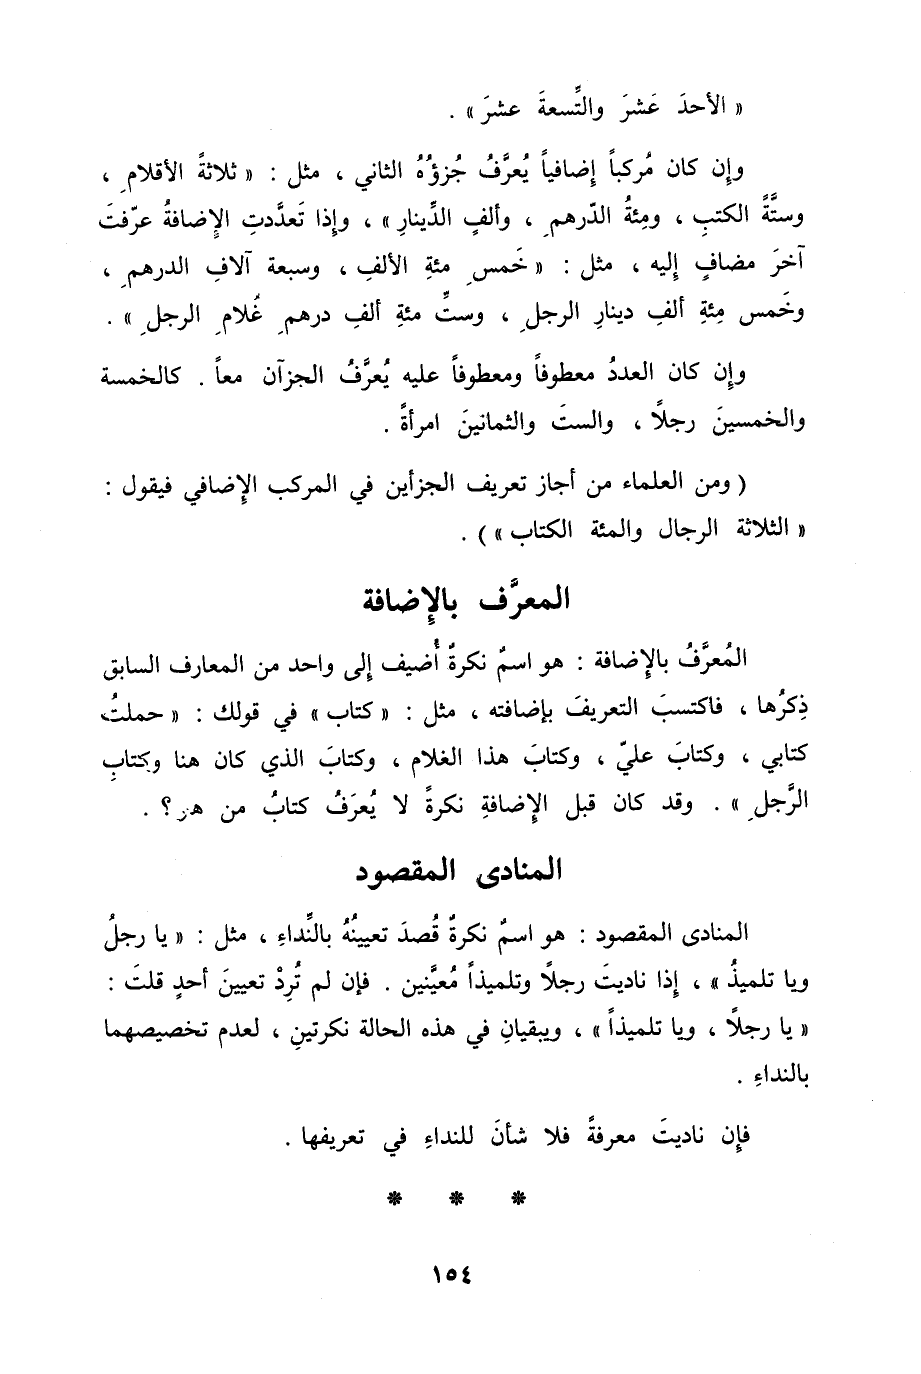 « الأحدَ عَشرَ والتِّسعةَ عشرَ » .
وإِن كان مُركباً إِضافياً يُعرَّفُ جُزؤُهُ الثاني ، مثل : « ثلاثةُ الأقلامِ ،
وستَّةُ الكتبِ ، ومِئةُ الدّرهمِ ، وألفِ الدِّينارِ » ، وإِذا تَعدَّدتِ الإِضافةُ عرّفتَ
آخرَ مضافٍ إِليه ، مثل : « خَمسِ مئةِ الألفِ ، وسبعة آلافِ الدرهمِ ،
وخَمس مِئةِ ألفِ دينارِ الرجلِ ، وستِّ مئةِ ألفِ درهمِ غُلامِ الرجلِ » .
وإِن كان العددُ معطوفاً ومعطوفاً عليه يُعرَّفُ الجزآن معاً . كالخمسة
والخمسينَ رجلاً ، والستَ والثمانينَ امرأةً .
( ومن العلماء من أجاز تعريف الجزأين في المركب الإِضافي فيقول :
« الثلاثة الرجال والمئة الكتاب » ) .
المعرَّف بالإِضافة
المُعرَّفُ بالإِضافة : هو اسمٌ نكرةٌ أُضيف إِلى واحد من المعارف السابق
ذِكرُها ، فاكتسبَ التعريفَ بإضافته ، مثل : « كتاب » في قولك : « حملتُ
كتابي ، وكتابَ عليّ ، وكتابَ هذا الغلام ، وكتابَ الذي كان هنا وكتابِ
الرَّجلِ » . وقد كان قبل الإِضافةِ نكرةً لا يُعرَفُ كتابُ من هو؟ .
المنادى المقصود
المنادى المقصود : هو اسمٌ نكرةٌ قُصدَ تعيينُهُ بالنِّداءِ ، مثل : « يا رجلُ
ويا تلميذُ » ، إِذا ناديتَ رجلاً وتلميذاً مُعيَّنين . فإن لم تُرِدْ تعيينَ أحدٍ قلتَ :
« يا رجلاً ، ويا تلميذاً » ، ويبقيانِ في هذه الحالة نكرتينِ ، لعدم تخصيصهما
بالنداءِ .
فإن ناديتَ معرفةً فلا شأنَ للنداءِ في تعريفها .
* * *
١٥٤